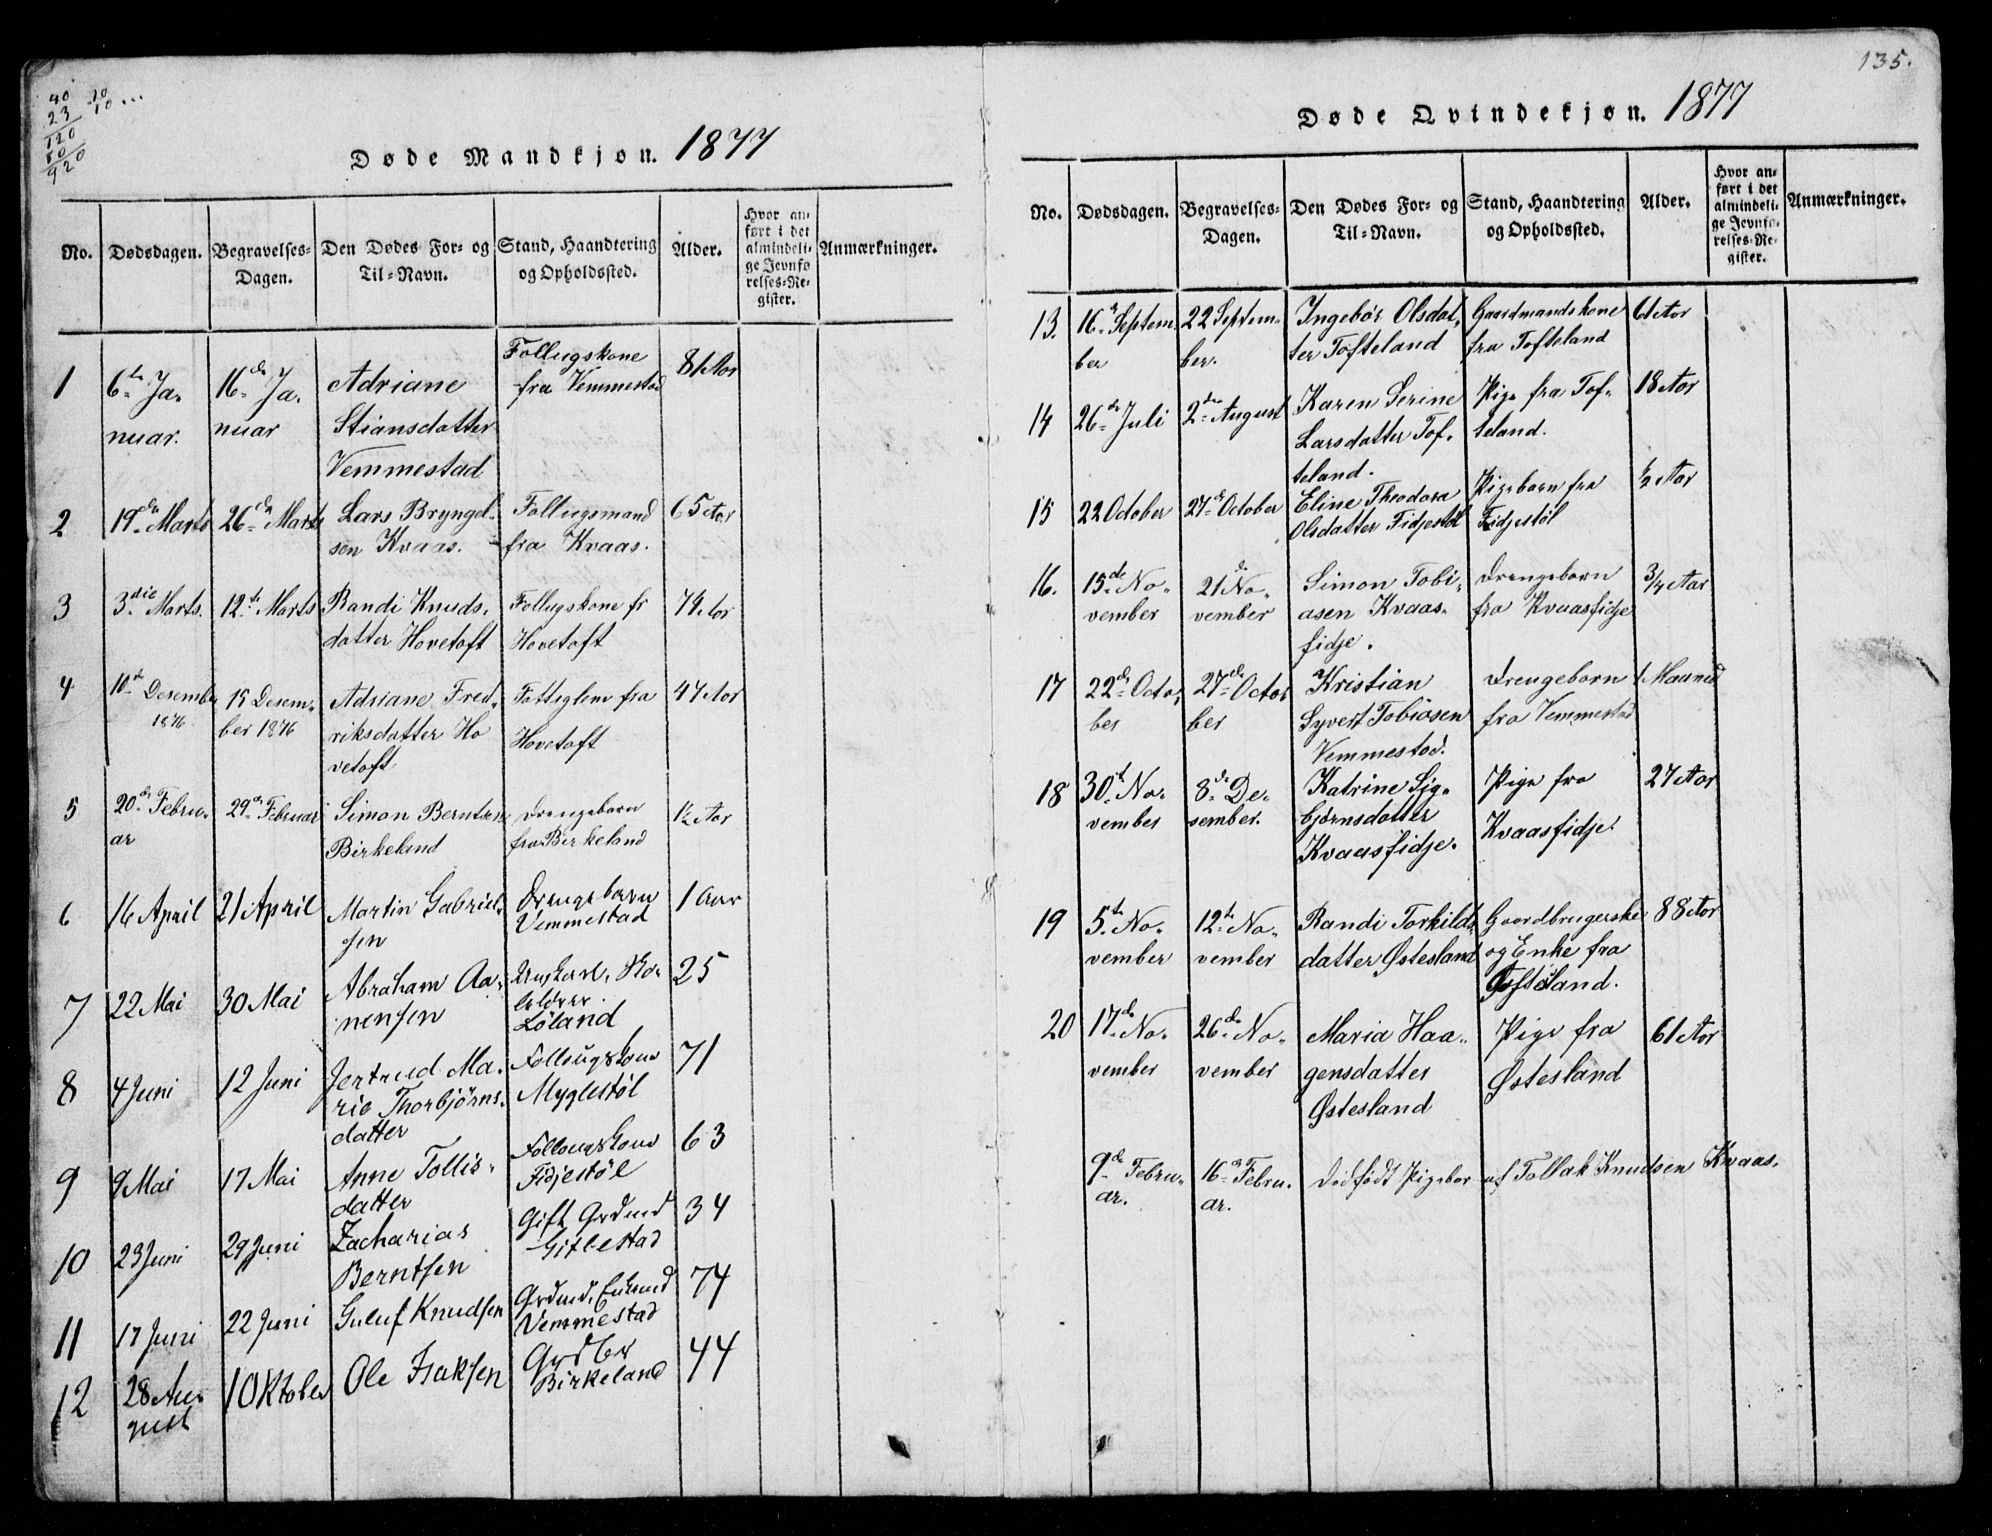 40 10
23 10 ...
120
80
920
Døde Mandkjøn. 1877
No.
Dødsdagen.
Begravelses-
Dagen.
Den Dødes For- og
Til-Navn.
Stand, Haandtering
og Opholdssted.
Alder.
Hvor an-
ført i det
almindeli-
ge Jevnfø
relses-Re-
gister.
Anmærkninger.
1
6te Ja-
nuar.
16de Ja.
nuar
Adriane
Stiansdatter
Vemmestad
Follugskone
fra Vemmestad
81 Aar
2
19de Marts
26de Marts
Lars Bryngel-
sen Kvaas.
Follugsmand
fra Kvaas.
65 Aar
3
3die Marts.
12te Marts
Randi Knuds-
datter Hovetoft
Follugskone fr
Hovetoft
74 Aar
4
10de Desember
1876
15 Desem-
ber 1876
Adriane Fred-
riksdatter Ho
vetoft
Fattiglem fra
Hovetoft
47 Aar
5
20de Febru-
ar
29de Februar
Simon Berntsen
Birkeland
Drengebarn
fra Birkeland
1½ Aar
6
16 April
21 April
Martin Gabriel-
sen
Drengebarn
Vemmestad
1 Aar
7
22 Mai
30 Mai
Abraham Aa-
nensen
Ungkarl,
Løland
25
8
4 Juni
12 Juni
Jertrud Ma-
rie Thorbjörns-
datter
Follougskone
Myglestøl
71
9
9 Mai
17 Mai
Anne Tollis-
datter
Follougskone
Fidjestøl
63
10
23 Juni
29 Juni
Zacharias
Berntsen
Gift Grdmd
Gitlestad
34
11
17 Juni
22 Juni
Guluf Knudsen
Grdmd, Enkmd
Vemmestad
74
12
28 Au-
gust
1 Oktober
Ole Isaksen
Grdbr
Birkeland
44
135.
Døde Qvindekjøn. 1877
No.
Dødsdagen.
Begravelses-
Dagen.
Den Dødes For- og
Til-Navn.
Stand, Haandtering
og Opholdssted.
Alder.
Hvor an-
ført i det
almindeli-
ge Jevnfø-
relses-Re-
gister.
Anmærkninger.
13.
16de Septem
ber
22 Septem-
ber.
Ingebør Olsdat-
ter Tofteland
Gaardmandskone
fra Tofteland
61 Aar
14
26de Juli
2den August
Karen Serine
Larsdatter Tof-
teland.
Pige fra Tof-
teland.
18 Aar
15
22 October
27de October
Eline Theodora
Olsdatter Fidjestøl
Pigebarn fra
Fidjestøl
½ Aar
16.
15de No-
vember
21de No-
vember
Simon Tobi-
asen Kvaas-
fidje.
Drengebarn
fra Kvaasfidje
3/4 Aar
17
22de Octo-
ber
27de Octo-
ber
Kristian
Syvert Tobiasen
Vemmestad.
Drengebarn
fra Vemmestad
1 Maaned
18
30te No-
vember
8de De-
sember.
Katrine Sig-
bjørnsdatter
Kvaasfidje.
Pige fra
Kvaasfidje.
27 Aar
19
5te No-
vember
12te No-
vember
Randi Torkilds
datter Østesland
Gaardbrugerske
og Enke fra
Østesland.
88 Aar
20
17de No-
vember
26de No-
vember
Maria Haa-
gensdatter
Østesland
Pige fra
Østesland
61 Aar
9de Febru-
ar.
16de Febru-
ar.
Dødfødt Pigebar af Tollak Knudsen Kvaas.